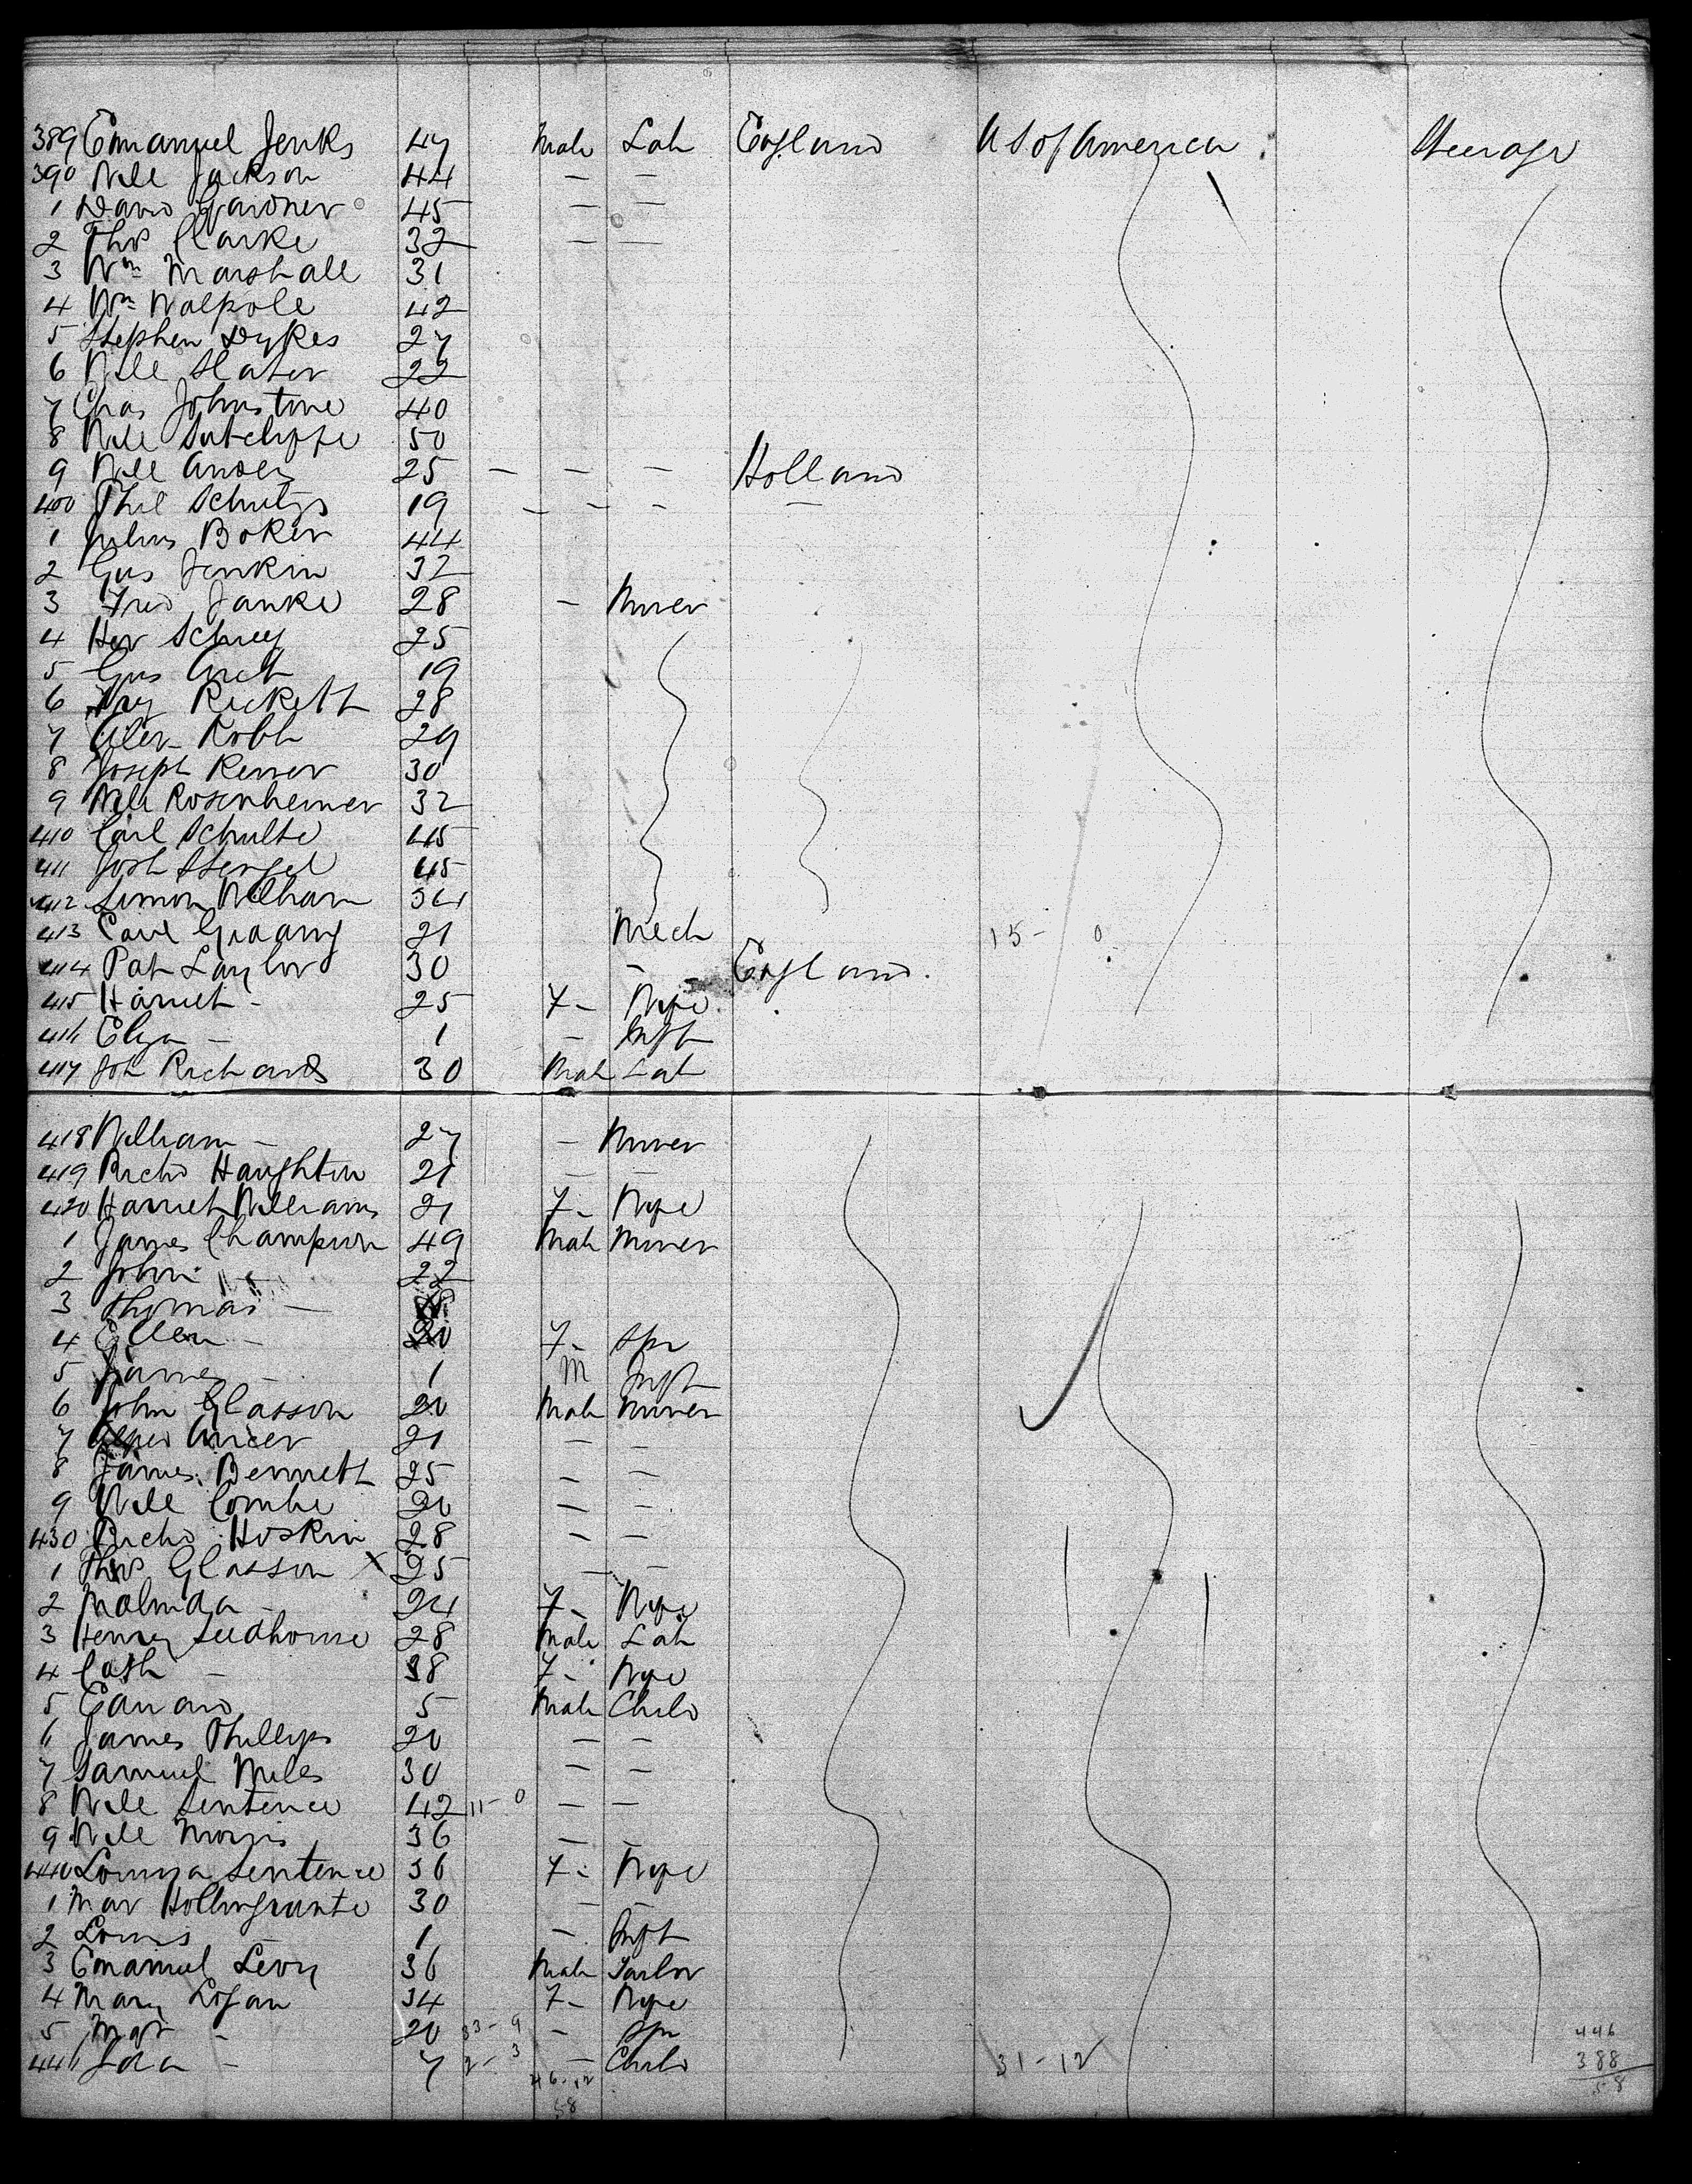 389 Emanuel Jenks 47 Male Lab England U S of America Steerage
390 Will Jackson 44 — —
1 David Gardner 45 — —
2 Thos Clarke 32 — —
3 Wm Marshall 31
4 Wm Walpole 42
5 Stephen Dykes 27
6 Will Slater 22
7 Chas Johnstone 40
8 Will Sutcliffe 50
9 Will 25 — — — Holland
400 Phil Schultz 19 — — — —
1 Julius Boker 44
2 Gus Jenkin 32
3 Fred Janke 28 — Miner
4 Her 25
5 Gus 19
6 Rickett 28
7 Alex Robb 29
8 Joseph Renner 30
9 Will Rosenheimer 32
410 Carl Schulte 45
411 Josh Stengel 45
412 Simon William 34
413 Carl 21 Mech 15 - 0
414 Pat Taylor 30 — England.
415 Harriet — 25 F — Wife
416 Eliza — 1 — Inft
417 Joh Richards 30 Male Lab
418 William — 27 — Miner
419 Richd Haughton 21 — —
420 Harriet Williams 21 F — Wife
1 James Champion 49 Male Miner
2 John — 22
3 Thomas —
4 Ellen — 20 F — Spr
5 James — 1 M Inft
6 John Glasson 20 Male Miner
7 Alfred 21 — —
8 James Bennett 25 — —
9 Will Combe 20 — —
430 Richd Hoskin 28 — —
1 Thos Glasson X 25 — —
2 Malinda — 24 F — Wife
3 Henry Leedhouse 28 Male Lab
4 Cath — 38 F — Wife
5 Edward 5 Male Child
6 James Phillips 20 — —
7 Samuel Miles 30 — —
8 Will Sentence 42 11 - 0 — —
9 Will Morris 36 — —
440 Louisa Sentence 36 F — Wife
1 Mar 30 — —
2 Louis 1 — Inft
3 Emanuel Levy 36 Male Tailor
4 Mary Logan 34 F — Wife
5 Mgt — 20 33 - 9 — Spr 446
446 Ida — 7 2 - 3 — Child 31 - 12 388
46 - 12 58
58